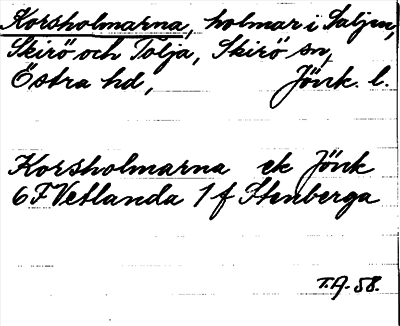 Korsholmarna, holmar i Saljen,
Skirö och Tolja, Skirö sn,
Östra hd, Jönk. l.
Korsholmarna ek Jönk
6 F Vetlanda 1 f Stenberga
T.A. 58.